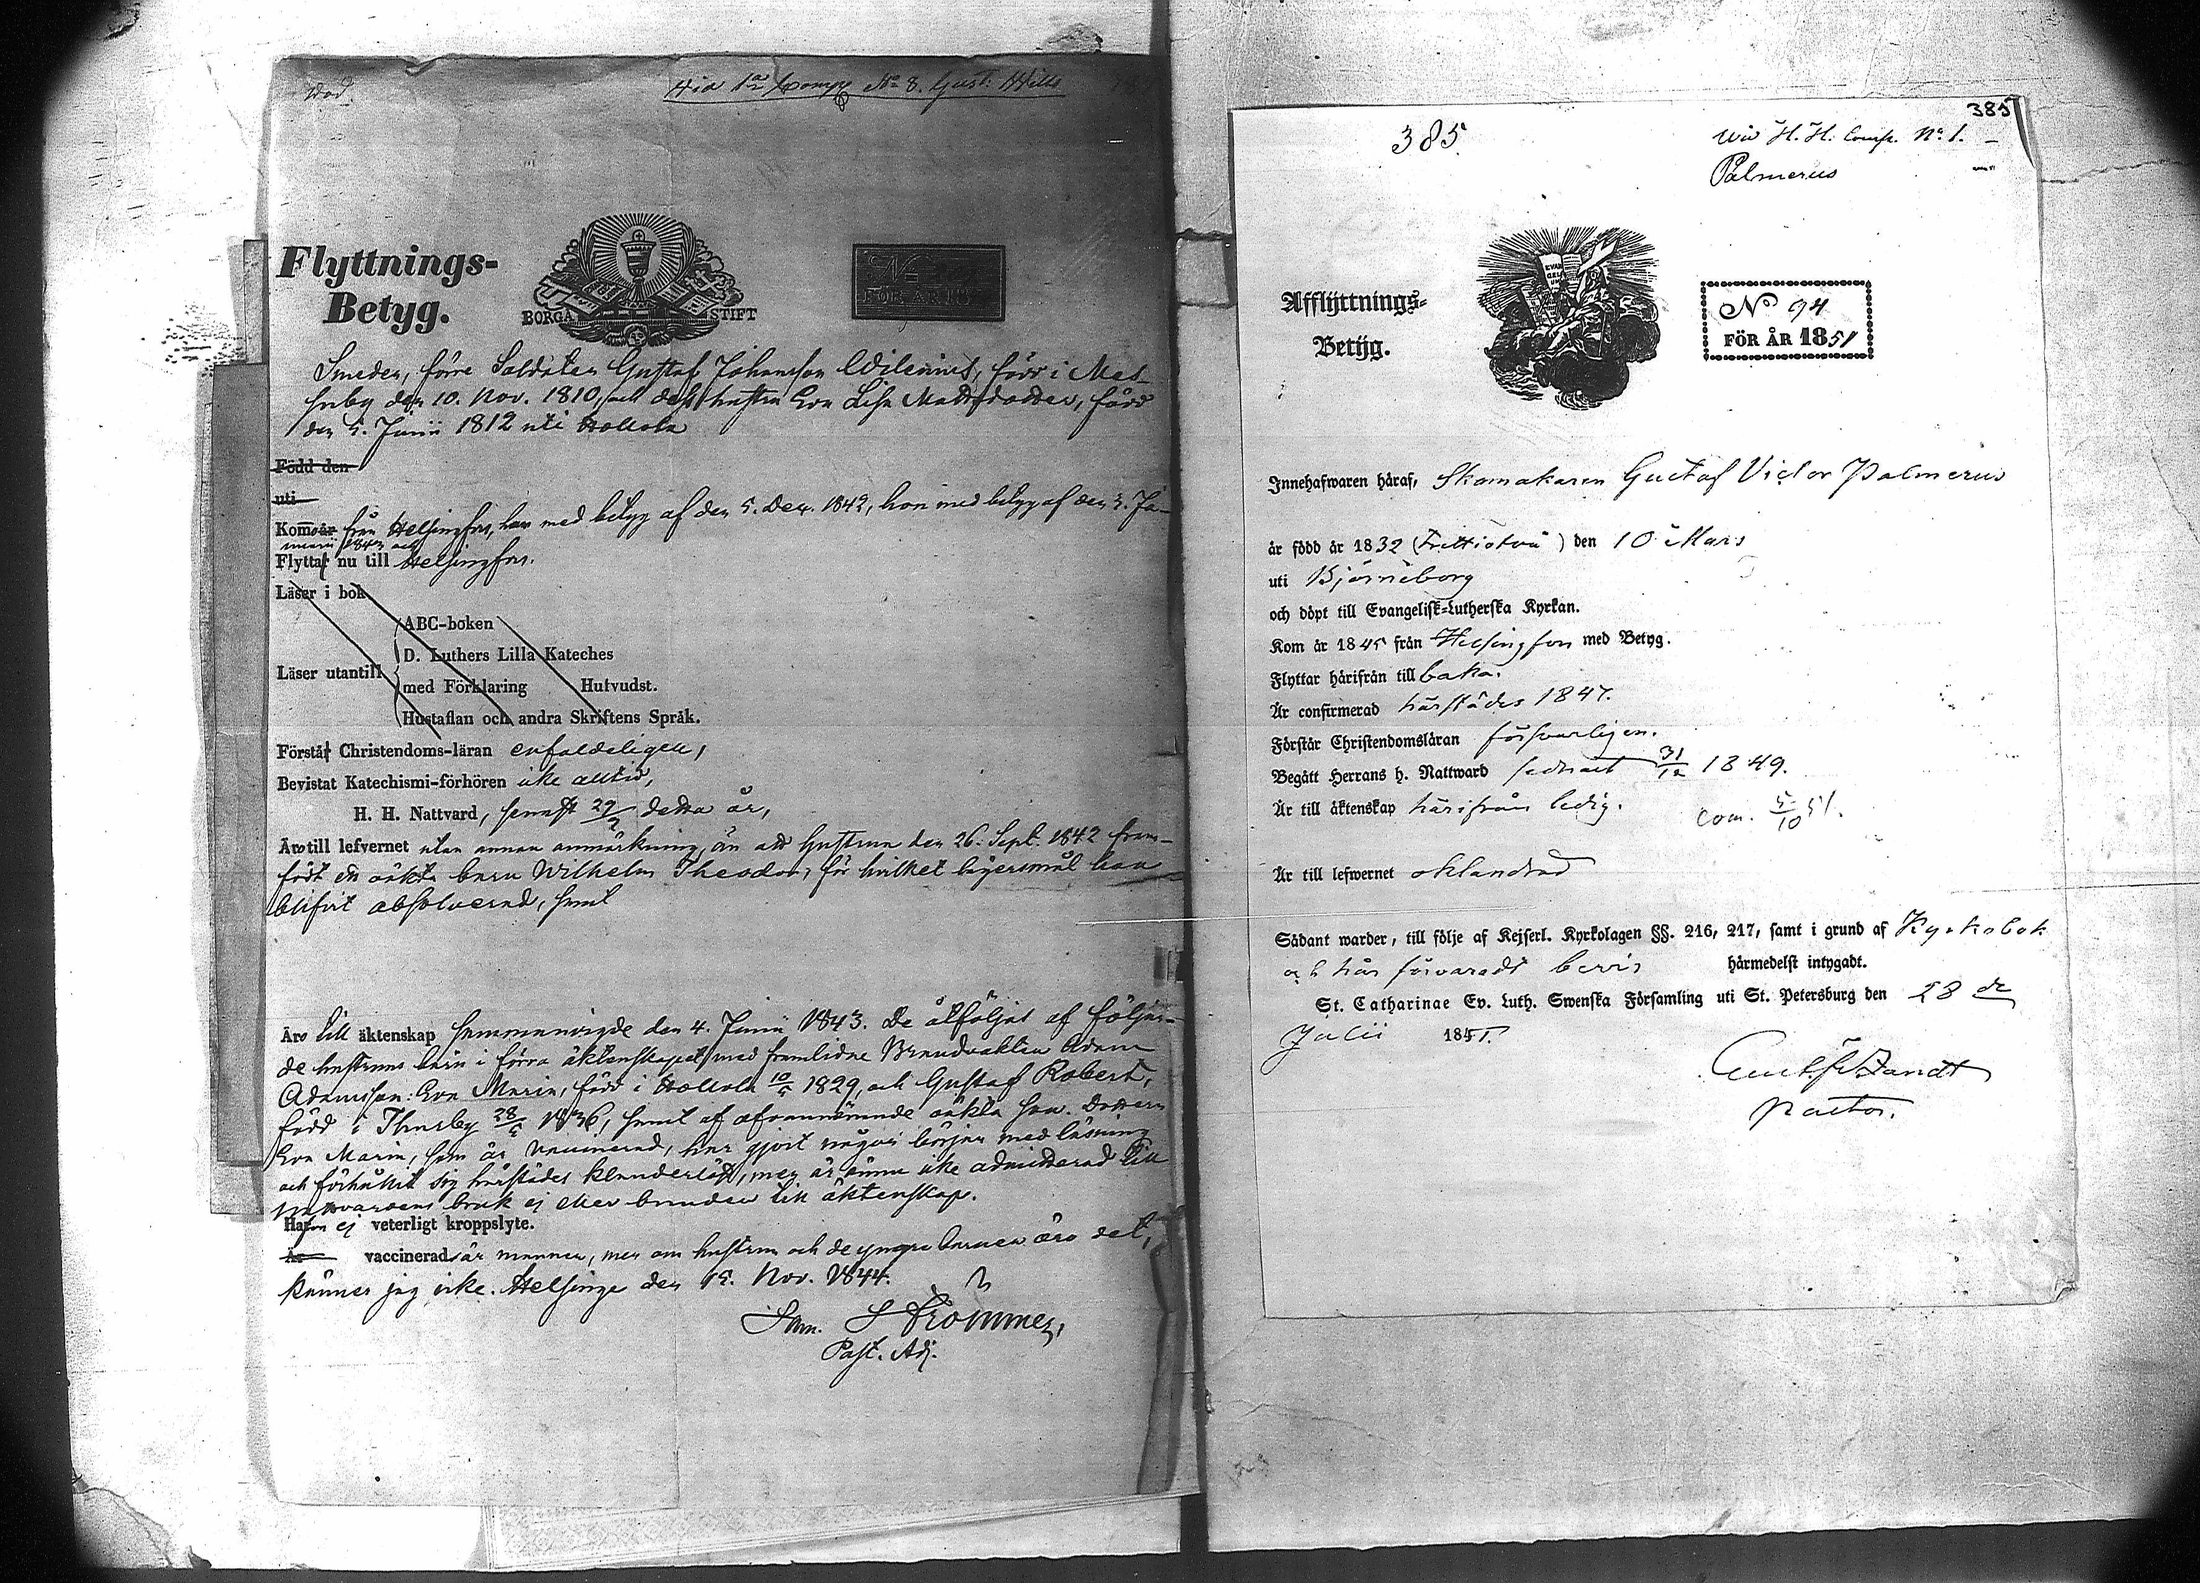 Wid 1a Comp No 8. Gust. Wille
Flyttnings-
Betyg.
BORGÅ STIFT
No
FÖR ÅR 18
Smeden, förre Soldaten Gustaf Johansson Wilenius, född i Mes-
kuby den 10. Nov. 1810, och dess hustru Eva Lisa Mattsdotter, född
den 5. Junii 1812 uti Hollola
Född den
uti
Kom år från Helsingfors, han med betyg af den 5. Dec. 1842, hon med betyg af den 3. Ja-
nuarii 1843 och
Flyttar nu till Helsingfors.
Läser i bok
ABC-boken
D. Luthers Lilla Kateches
Läser utantill
med Förklaring Hufvudst.
Hustaflan och andra Skriftens Språk.
Förstå Christendoms-läran enfaldeligen,
Bevistat Katechismi-förhören icke alltid,
H. H. Nattvard, senast 29/2 detta år,
Äro till lefvernet utan annan anmärkning, än att hustrun den 26. Sept. 1842 fram-
födt ett oäkta barn Wilhelm Theodor, för hvilket lägersmål hon
blifvit absolverad, samt
Äro till äktenskap sammanvigde den 4. Junii 1843. De åtföljas af följan-
de hustruns barn i förra äktenskapet med framlidne Brandvakten Adam
Adamsson: Eva Maria, född i Hollola 10/5 1829, och Gustaf Robert,
född i Thusby 28/5 1836, samt af ofvannämnde oäkta son. Dottern
Eva Maria, som är vaccinerad, har gjort någon början med läsning
och förhållit sig härstädes klanderlöst, men är ännu icke admitterad till
nattvardens bruk ej eller bunden till äktenskap.
Hafva ej veterligt kroppslyte.
Är vaccinerad är mannen, men om hustrun och de yngre barnen äro det,
känner jag icke. Helsinge den 15. Nov. 1844.
Sam. Strömmer,
Past. Adj.
385
385
Wid H. H. Comp. No 1.
Palmerus
Afflyttnings-
Betyg.
No 94
FÖR ÅR 1851
Innehafwaren häraf, Skomakaren Gustaf Victor Palmerus
är född år 1832 (Trettiotvå) den 10 Mars
uti Björneborg
och döpt till Evangelisk-Lutherska Kyrkan.
Kom år 1845 från Helsingfors med Betyg.
Flyttar härifrån till baka.
Är confirmerad härstädes 1847.
Förstår Christendomsläran försvarligen.
Begått Herrans h. Nattward sednast 31/12 1849.
Är till äktenskap härifrån ledig. Com. 5/10 51.
Är till lefwernet oklandrad
Sådant warder, till följe af Kejserl. Kyrkolagen §§. 216, 217, samt i grund af Kyrkobok
och här förvaradt bevis härmedelst intygadt.
St. Catharinae Ev. Luth. Swenska Församling uti St. Petersburg den 28 de
Julii 1851.
Zandt
Pastor.